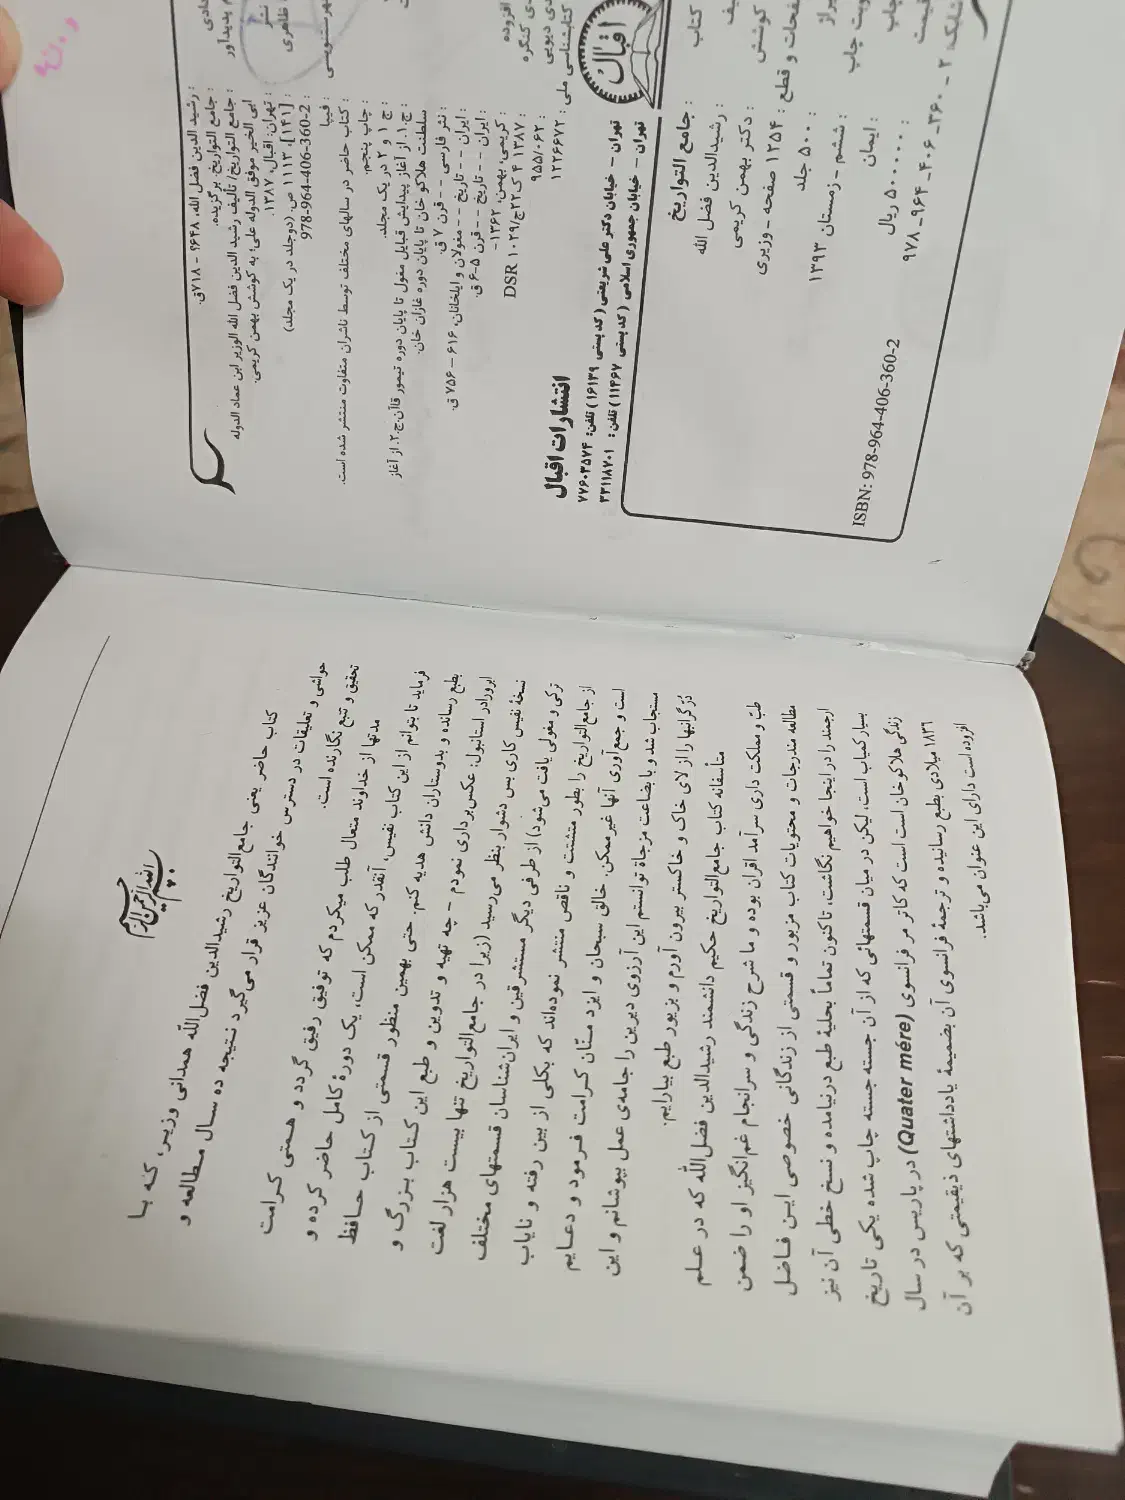 : رشید الدین فضل الله، ۶۴۸؟ - ۷۱۸ق.
: جامع التواریخ. برگزیده.
: جامع التواریخ/ تألیف رشید الدین فضل الله الوزیر ابن عماد الدوله
ابی الخیر موفق الدوله علی؛ به کوشش بهمن کریمی.
: تهران: اقبال، ۱۳۸۷.
: [۱۴۱]، ۱۱۱۳ ص. (دوجلد در یک مجلد)
: 978-964-406-360-2
: فیپا
: کتاب حاضر در سالهای مختلف توسط ناشران متفاوت منتشر شده است.
: چاپ پنجم.
: ج ۱ و ۲ در یک مجلد.
: ج.۱. از آغاز پیدایش قبایل مغول تا پایان دوره تیمور قاآن.ج.۲. از آغاز
سلطنت هلاکو خان تا پایان دوره غازان خان.
: نثر فارسی -- قرن ۷ ق.
: ایران -- تاریخ -- مغولان و ایلخانان، ۶۱۶ - ۷۵۶ ق.
: ایران -- تاریخ -- قرن ۵-۶ ق.
افزوده : کریمی، بهمن، ۱۳۶۲-
کنگره : ۱۳۸۷ ۴ک۲۲ج/۱۰۲۹ DSR
دیویی : ۹۵۵/۰۶۲
کتابشناسی ملی : ۱۲۲۶۶۷۲
اقبال
انتشارات اقبال
تهران - خیابان دکتر علی شریعتی ( کد پستی ۱۶۱۳۹ ) تلفن: ۷۷۶۰۳۵۷۴
تهران - خیابان جمهوری اسلامی ( کد پستی ۱۱۴۶۷ ) تلفن : ۳۳۱۱۸۷۰۱
کتاب : جامع التواریخ
: رشیدالدین فضل الله
کوشش : دکتر بهمن کریمی
صفحات و قطع : ۱۲۵۴ صفحه - وزیری
: ۵۰۰ جلد
چاپ : ششم - زمستان ۱۳۹۳
چاپ : ایمان
قیمت : ۵۰۰۰۰۰ ریال
شابک: ۲ - ۳۶۰ - ۴۰۶ - ۹۶۴ - ۹۷۸
ISBN: 978-964-406-360-2
بسم الله الرحمن الرحیم
کتاب حاضر یعنی جامع‌التواریخ رشیدالدین فضل‌الله همدانی وزیر، که با
حواشی و تعلیقات در دسترس خوانندگان عزیز قرار می‌گیرد نتیجه ده سال مطالعه و
تحقیق و تتبع نگارنده است.
مدتها از خداوند متعال طلب میکردم که توفیق رفیق گردد و همتی کرامت
فرماید تا بتوانم از این کتاب نفیس، آنقدر که ممکن است، یک دورهٔ کامل حاضر کرده و
بطبع رسانده و بدوستاران دانش هدیه کنم. حتی بهمین منظور قسمتی از کتاب حافظ
ابرورادر استانبول، عکس‌برداری نمودم - چه تهیه و تدوین و طبع این کتاب بزرگ و
نسخهٔ نفیس کاری بس دشوار بنظر می‌رسید (زیرا در جامع‌التواریخ تنها بیست هزار لغت
ترکی و مغولی یافت می‌شود) از طرفی دیگر مستشرقین و ایران‌شناسان قسمتهای مختلف
از جامع‌التواریخ را بطور متشتت و ناقص منتشر نموده‌اند که بکلی از بین رفته و نایاب
است و جمع‌آوری آنها غیرممکن، خالق سبحان و ایزد منّان کرامت فرمود و دعایم
مستجاب شد و با بضاعت مزجاة توانستم این آرزوی دیرین را جامه‌ی عمل بپوشانم و این
دُرّ گرانبها را از لای خاک و خاکستر بیرون آورم و بزیور طبع بیارایم.
متأسفانه کتاب جامع‌التواریخ حکیم دانشمند رشیدالدین فضل‌الله که در علم
طبّ و مملکت داری سرآمد اقران بوده و ما شرح زندگی و سرانجام غم‌انگیز او را ضمن
مطالعه مندرجات و محتویات کتاب مزبور و قسمتی از زندگانی خصوصی این فاضل
ارجمند را در اینجا خواهیم نگاشت، تاکنون تماماً بحلیهٔ طبع درنیامده و نسخ خطی آن نیز
بسیار کمیاب است، لیکن در میان قسمتهائی که از آن جسته جسته چاپ شده یکی تاریخ
زندگی هلاکوخان است است که کاتر مر فرانسوی (Quater mére) در پاریس در سال
۱۸۳۶ میلادی بطبع رسانیده و ترجمهٔ فرانسوی آن بضمیمهٔ یادداشتهای ذیقیمتی که بر آن
افزوده است دارای این عنوان می‌باشد.